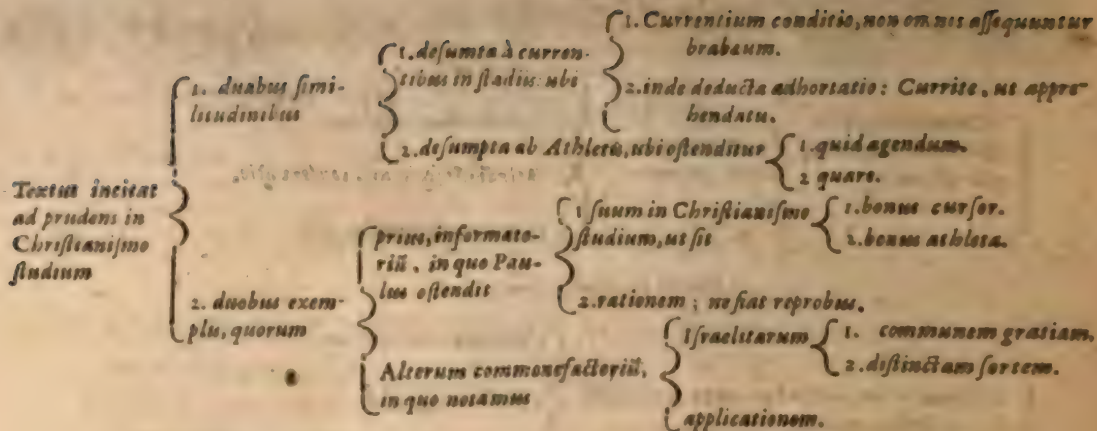 Textus incitat
ad prudens in
Christianismo
studium
1. duabus simi-
litudinibus
1. desumta à curren-
tibus in stadiis: ubi
1. Currentium conditio, non omnes assequuntur
brabæum.
2. inde deducta adhortatio: Currite, ut appre-
hendatis.
2. desumpta ab Athletis, ubi ostenditur
1. quid agendum.
2 quare.
2. duobus exem-
plis, quorum
prius, informato-
riũ, in quo Pau-
lus ostendit
1 suum in Christianismo
studium, ut sit
1. bonus cursor.
2. bonus athleta.
2. rationem; ne fiat reprobus.
Alterum commonefactoriũ,
in quo notamus
Israelitarum
1. communem gratiam.
2. distinctam sortem.
applicationem.